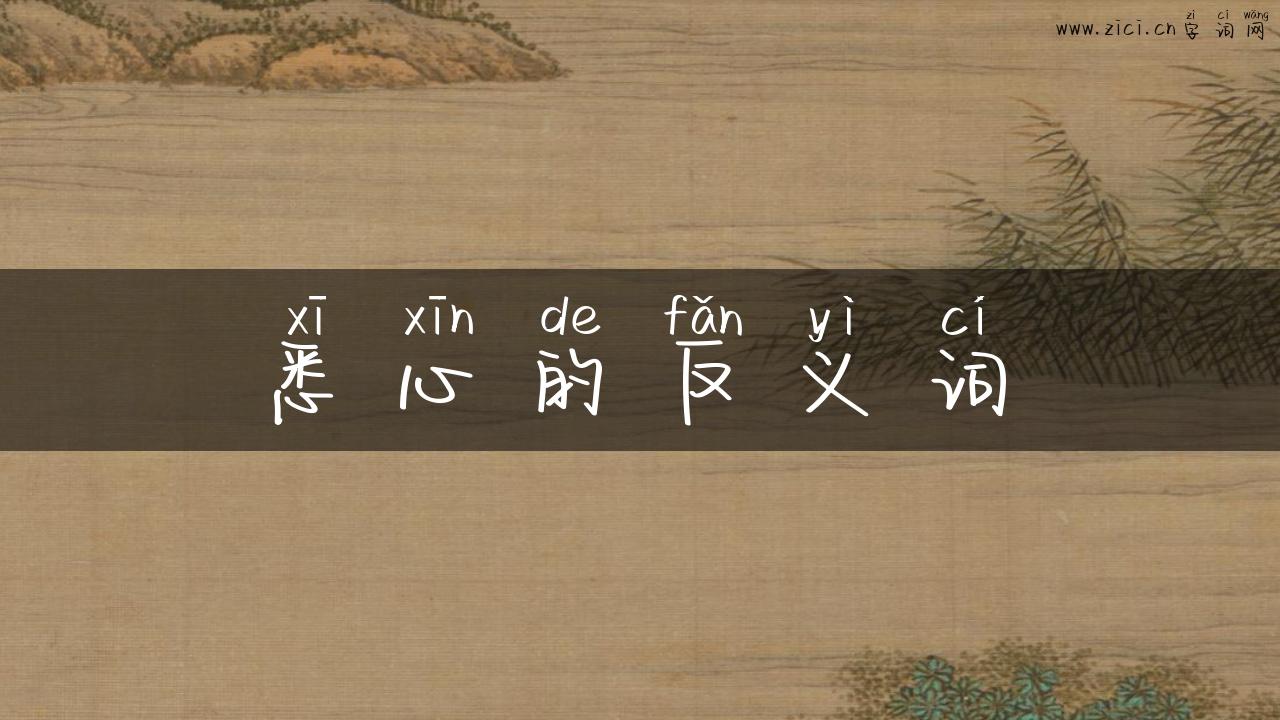 zì cí wǎng
www.zici.cn 字词网
xī xīn de fǎn yì cí
悉心的反义词